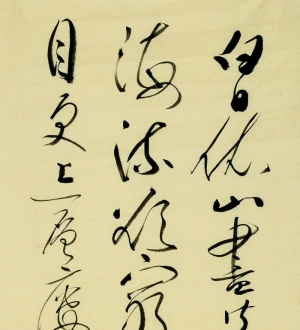 白日依山盡
海流欲窮
目更上一層樓